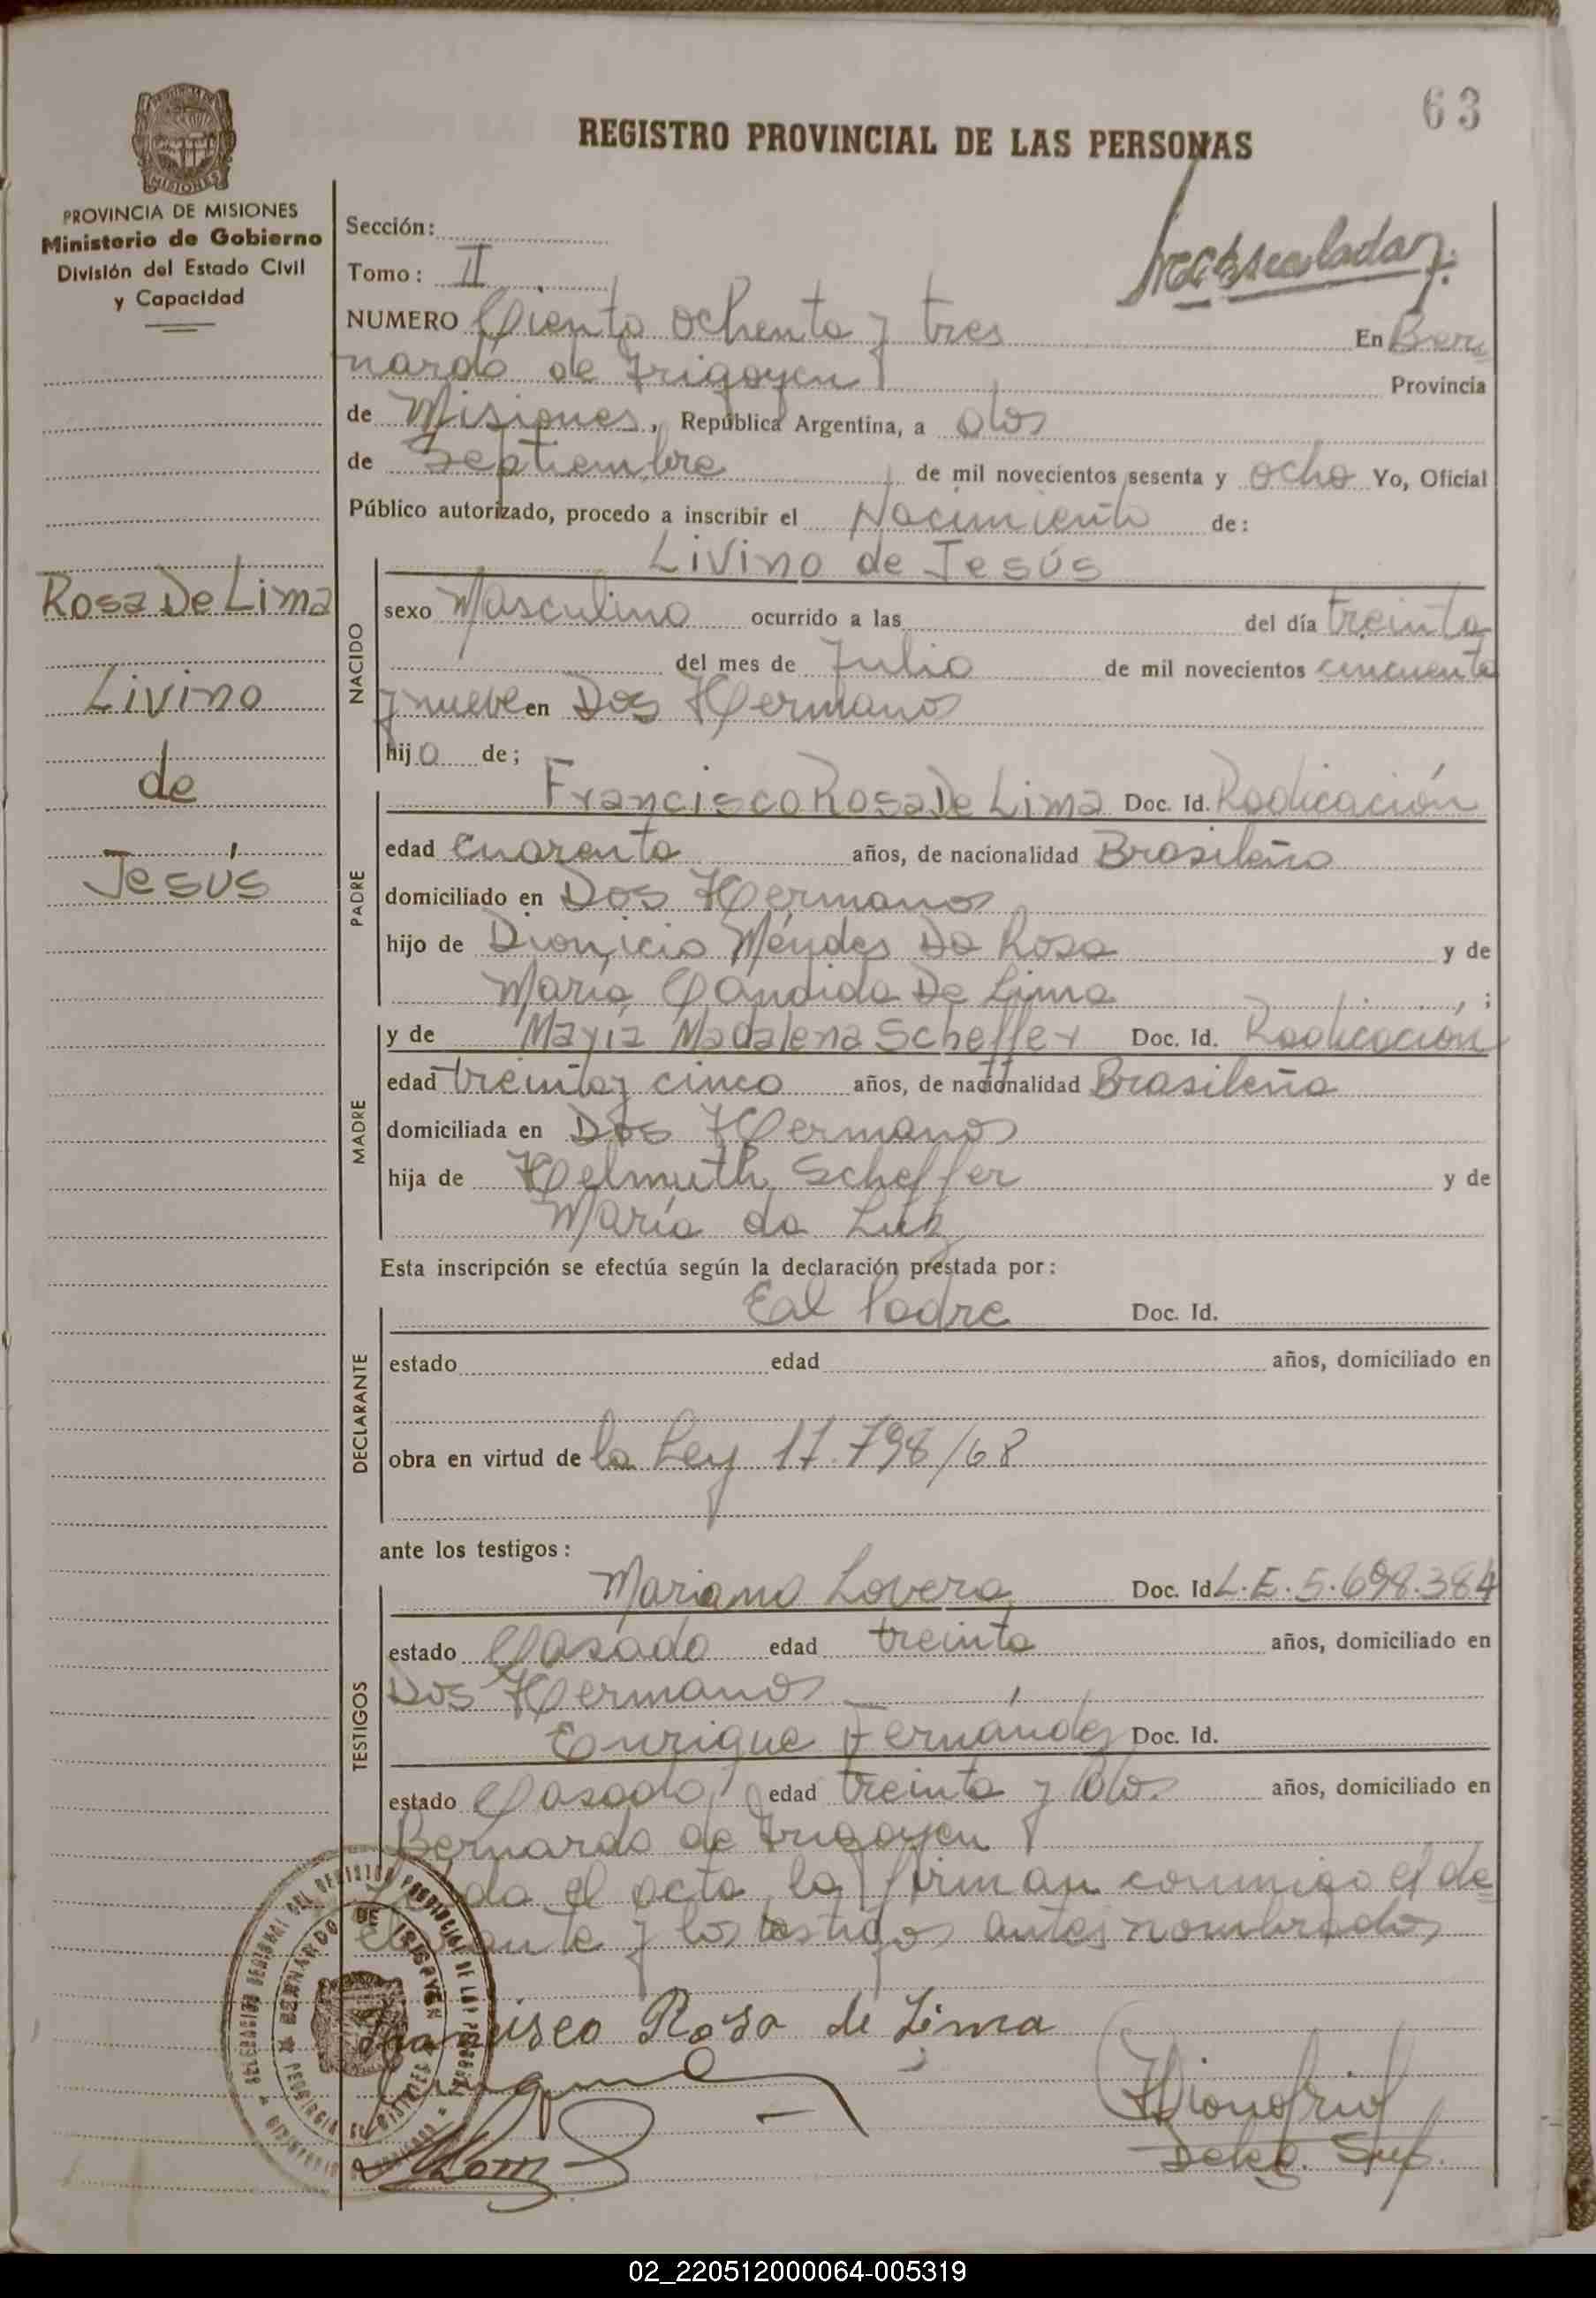 63
REGISTRO PROVINCIAL DE LAS PERSONAS
MISIONES
PROVINCIA DE MISIONES
Ministerio de Gobierno
División del Estado Civil
y Capacidad
Rosa De Lima
Livino
de
Jesús
Sección:
Tomo: II
NUMERO Ciento ochenta y tres En Ber=
nardo de Irigoyen Provincia
de Misiones, República Argentina, a dos
de Septiembre de mil novecientos sesenta y ocho Yo, Oficial
Público autorizado, procedo a inscribir el Nacimiento de:
Livino de Jesús
NACIDO
sexo Masculino ocurrido a las del día treinta
del mes de Julio de mil novecientos cincuenta
y nueve en Dos Hermanos
hijo de;
PADRE
Francisco Rosa De Lima Doc. Id. Radicación
edad cuarenta años, de nacionalidad Brasileña
domiciliado en Dos Hermanos
hijo de Dionicio Méndes Da Rosa y de
María Cándida De Lima ;
MADRE
y de María Madalena Scheffer Doc. Id. Radicación
edad treinta y cinco años, de nacionalidad Brasileña
domiciliada en Dos Hermanos
hija de Helmuth Scheffer y de
María da Luz
Esta inscripción se efectúa según la declaración prestada por:
DECLARANTE
Eal Padre Doc. Id.
estado edad años, domiciliado en
obra en virtud de la Ley 17.798/68
ante los testigos:
TESTIGOS
Mariano Lovera Doc. Id L.E. 5.698.384
estado Casado edad treinta años, domiciliado en
Dos Hermanos
Enrique Fernández Doc. Id.
estado Casado edad treinta y dos años, domiciliado en
Bernardo de Irigoyen
Leída el acta, la firman conmigo el de=
clarante y los testigos antes nombrados
BERNARDO DE IRIGOYEN
Francisco Rosa de Lima
Deleg. Sup.
02_220512000064-005319